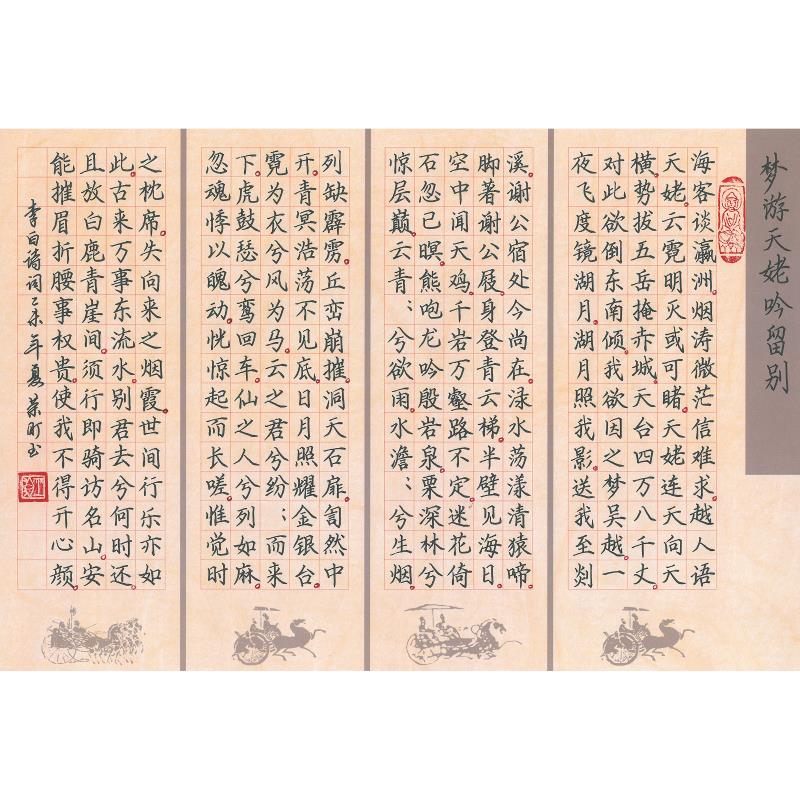 梦游天姥吟留别
海客谈瀛洲。烟涛微茫信难求。越人语
天姥。云霓明灭或可睹。天姥连天向天
横。势拔五岳掩赤城。天台四万八千丈。
对此欲倒东南倾。我欲因之梦吴越。一
夜飞度镜湖月。湖月照我影。送我至剡
溪。谢公宿处今尚在。渌水荡漾清猿啼。
脚著谢公屐。身登青云梯。半壁见海日。
空中闻天鸡。千岩万壑路不定。迷花倚
石忽已暝。熊咆龙吟殷岩泉。栗深林兮
惊层巅。云青；兮欲雨。水澹；兮生烟。
列缺霹雳。丘峦崩摧。洞天石扉。訇然中
开。青冥浩荡不见底。日月照耀金银台。
霓为衣兮风为马。云之君兮纷；而来
下。虎鼓瑟兮鸾回车。仙之人兮列如麻。
忽魂悸以魄动。恍惊起而长嗟。惟觉时
之枕席。失向来之烟霞。世间行乐亦如
此。古来万事东流水。别君去兮何时还。
且放白鹿青崖间。须行即骑访名山。安
能摧眉折腰事权贵。使我不得开心颜。
李白诗词乙未年夏荣町书